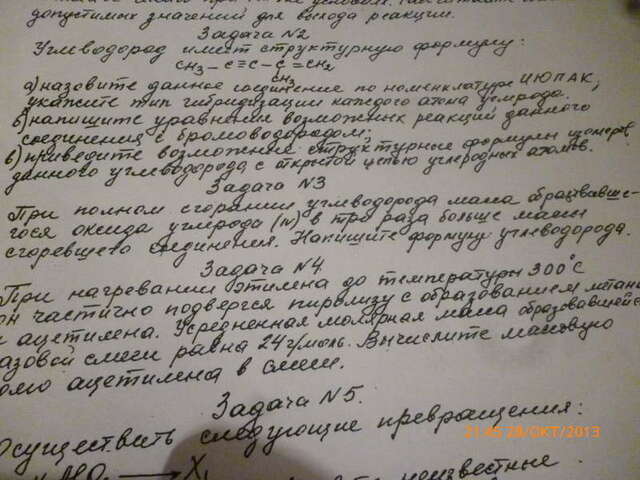 допустимых значений для выхода реакции.
Задача N2
Углеводород имеет структурную формулу:
CH₃ – C≡C – C =CH₂
CH₃
а) назовите данное соединение по номенклатуре ИЮПАК;
укажите тип гибридизации каждого атома углерода.
б) напишите уравнения возможных реакций данного
соединения с бромоводородом;
в) приведите возможные структурные формулы изомеров
данного углеводорода с открытой цепью углеродных атомов.
Задача N3
При полном сгорании углеводорода масса образовавше-
гося оксида углерода (IV) в три раза больше массы
сгоревшего соединения. Напишите формулу углеводорода.
Задача N4
При нагревании этилена до температуры 300°С
он частично подвергся пиролизу с образованием метана
и ацетилена. Усредненная молярная масса образовавшейся
газовой смеси равна 24 г/моль. Вычислите массовую
долю ацетилена в смеси.
Задача N5.
Осуществить следующие превращения:
21:45 28/OKT/2013
X₁
неизвестные